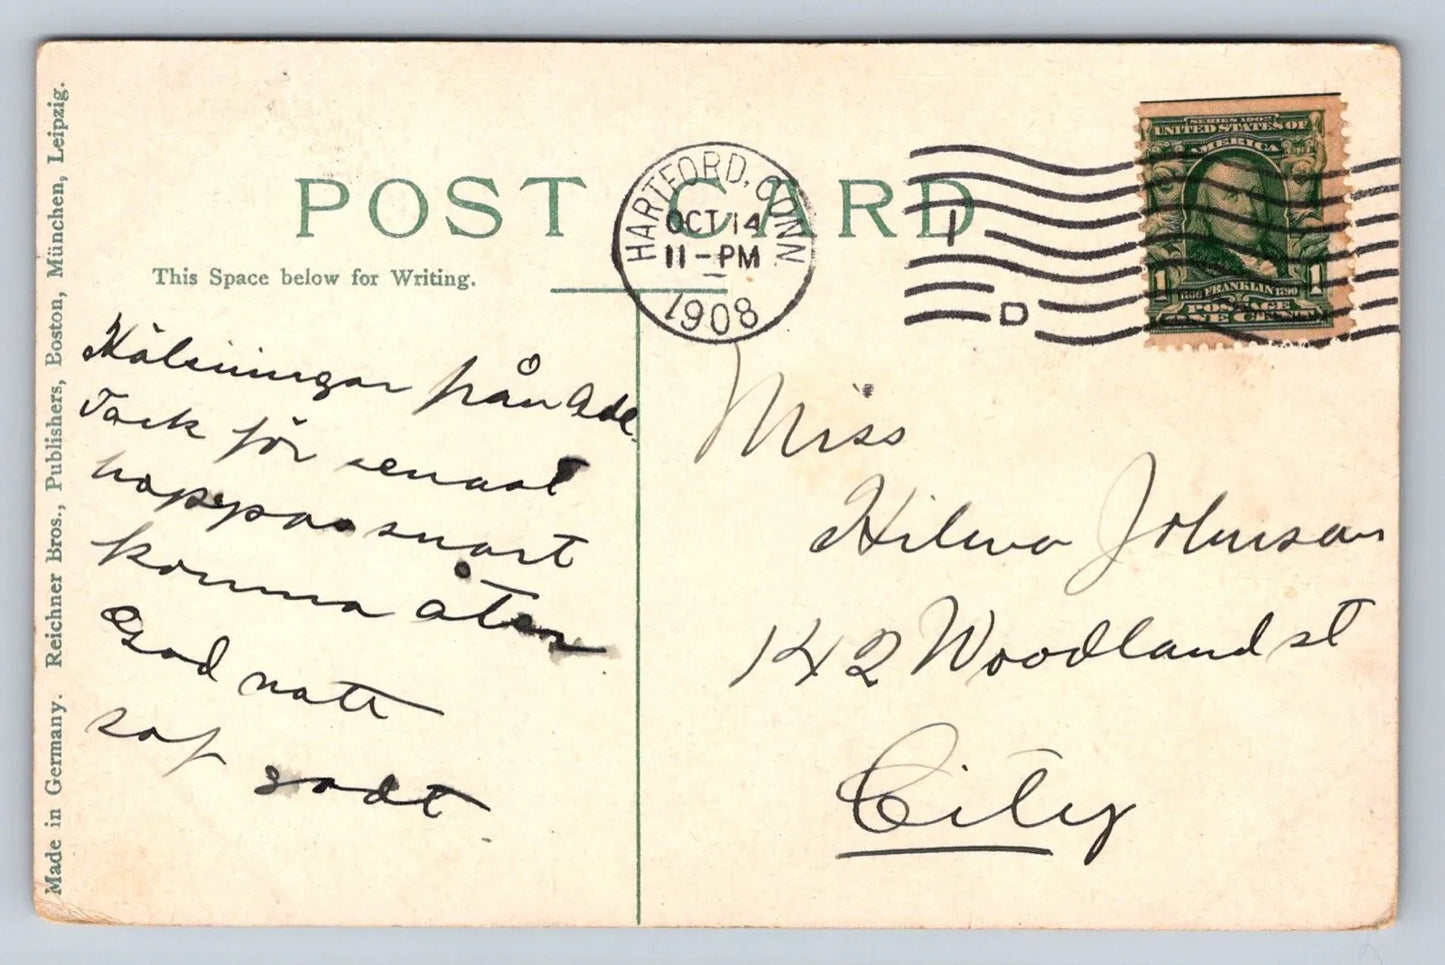 POST CARD
This Space below for Writing.
Made in Germany. Reichner Bros., Publishers, Boston, München, Leipzig.
HARTFORD, CONN.
OCT 14
11-PM
1908
1
D
SERIES 1902
UNITED STATES OF
AMERICA
1706 FRANKLIN 1790
POSTAGE
ONE CENT
1 1
Hälsningar från Adel.
Tack för senast
hoppas snart
komma åter
God natt
sof sodt.
Miss
Hilma Johnson
142 Woodland st
City